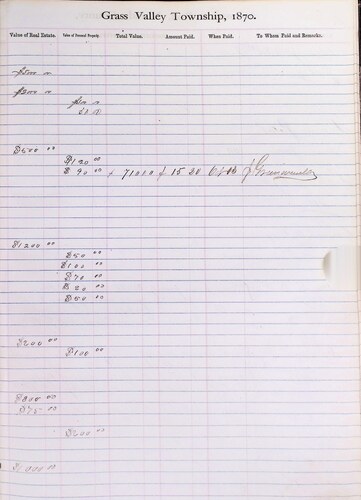 Grass Valley Township, 1870.
Value of Real Estate. Value of Personal Property. Total Value. Amount Paid. When Paid. To Whom Paid and Remarks.
$500 00
$200 00
$50 00
$500 00
$120 00
$ 90 00 $ 710 00 $ 15.20
$1200 00
$50 00
$100 00
$70 00
$20 00
$50 00
$200 00
$100 00
$800 00
$75 00
$200 00
$1000 00